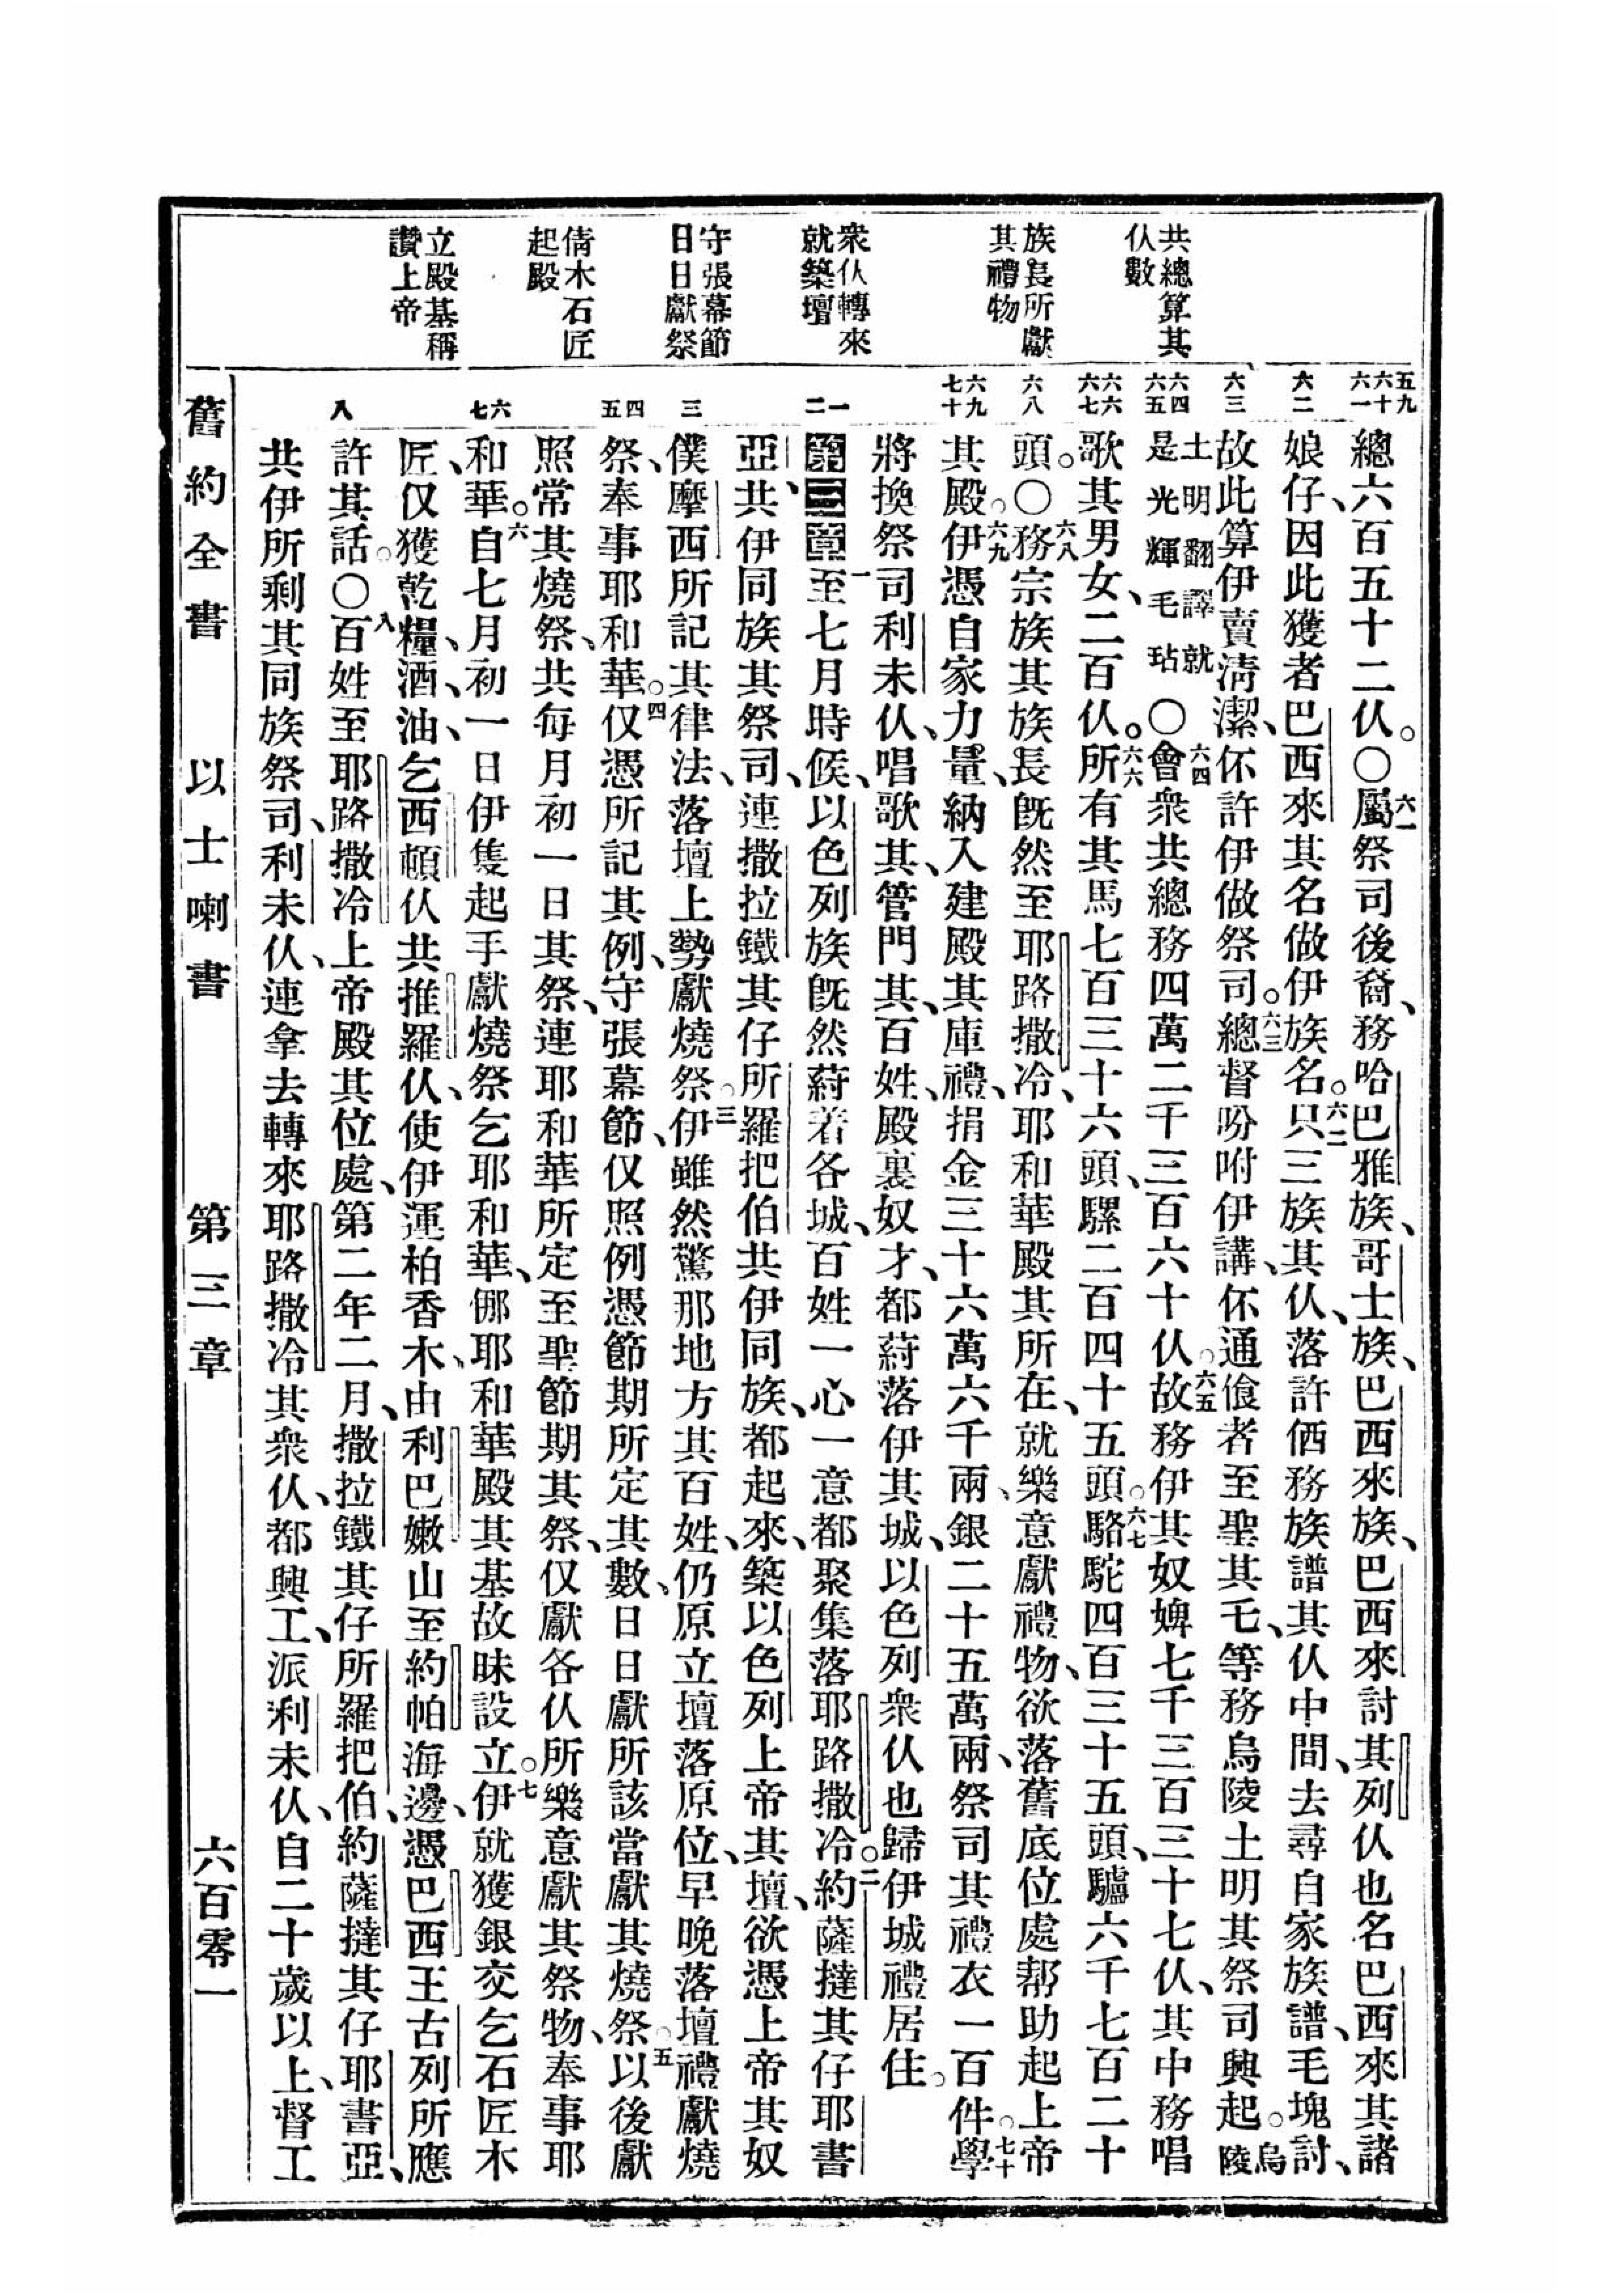 共總算其
仈數
族長所獻
其禮物
衆仈轉來
就築壇
守張幕節
日日獻祭
倩木石匠
起殿
立殿基稱
讚上帝
五九 六十 六一
六二
六三
六四 六五
六六 六七
六八
六九 七十
一 二
三
四 五
六 七
八
總六百五十二仈。〇六一屬祭司後裔、務哈巴雅族、哥士族、巴西來族、巴西來討其列仈也名巴西來其諸
娘仔、因此獲者巴西來其名做伊族名。六二只三族其仈、落許俖務族譜其仈中間、去尋自家族譜、毛塊討、
故此算伊賣淸潔、伓許伊做祭司。六三總督吩咐伊講、伓通飧者至聖其乇、等務烏陵土明其祭司興起。烏陵
土明翻譯就是光輝毛玷〇六四會衆共總務四萬二千三百六十仈。六五故務伊其奴婢七千三百三十七仈、其中務唱
歌其男女、二百仈。六六所有其馬七百三十六頭、騾二百四十五頭。六七駱駝四百三十五頭、驢六千七百二十
頭。〇六八務宗族其族長旣然至耶路撒冷、耶和華殿其所在、就樂意獻禮物、欲落舊底位處帮助起上帝
其殿。六九伊憑自家力量、納入建殿其庫禮、捐金三十六萬六千兩、銀二十五萬兩、祭司其禮衣一百件。七十學
將換祭司利未仈、唱歌其、管門其、百姓、殿裏奴才、都蒔落伊其城、以色列衆仈也歸伊城禮居住。
第三章一至七月時候、以色列族旣然蒔着各城、百姓一心一意都聚集落耶路撒冷。二約薩撻其仔耶書
亞、共伊同族其祭司、連撒拉鐵其仔所羅把伯共伊同族、都起來、築以色列上帝其壇、欲憑上帝其奴
僕摩西所記其律法、落壇上勢獻燒祭。三伊雖然驚那地方其百姓、仍原立壇落原位、早晚落壇禮獻燒
祭、奉事耶和華。四仅憑所記其例、守張幕節、仅照例憑節期所定其數、日日獻所該當獻其燒祭。五以後獻
照常其燒祭、共每月初一日其祭、連耶和華所定至聖節期其祭、仅獻各仈所樂意獻其祭物、奉事耶
和華。六自七月初一日伊隻起手獻燒祭乞耶和華、㑚耶和華殿其基故昧設立。七伊就獲銀交乞石匠木
匠、仅獲乾糧、酒、油、乞西頓仈共推羅仈、使伊運柏香木、由利巴嫩山至約帕海邊、憑巴西王古列所應
許其話。〇八百姓至耶路撒冷上帝殿其位處、第二年二月、撒拉鐵其仔所羅把伯、約薩撻其仔耶書亞、
共伊所剩其同族祭司、利未仈、連拿去轉來耶路撒冷其衆仈、都興工、派利未仈、自二十歲以上、督工
舊約全書 以士喇書 第三章 六百零一